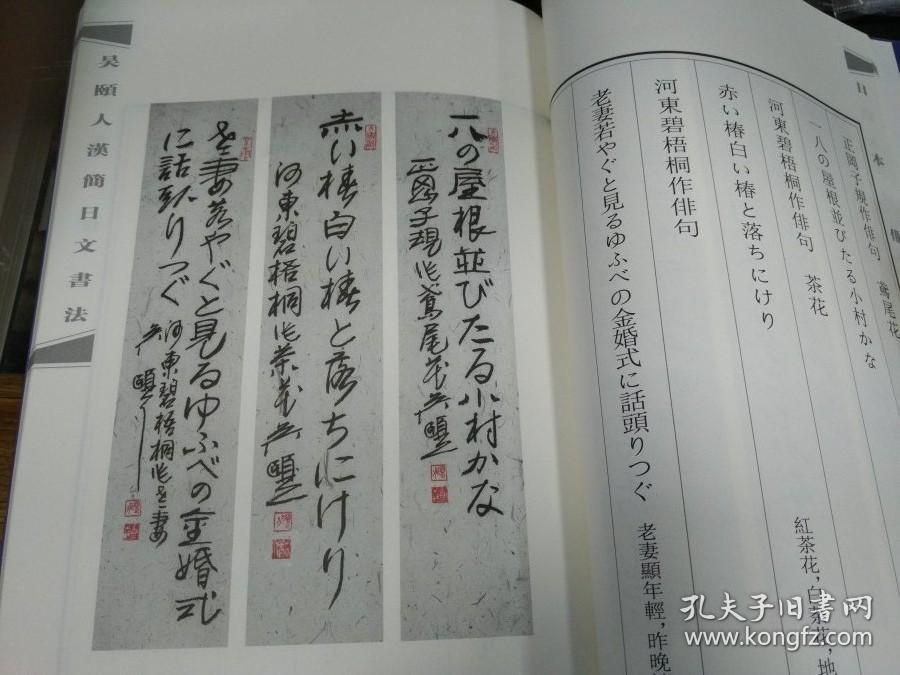 吴頤人漢簡日文書法
一八の屋根並びたる小村かな
正岡子規作鳶尾花 吴頤人
赤い椿白い椿と落ちにけり
河東碧梧桐作茶花 吴頤人
老妻若やぐと見るゆふべの金婚式
に話頭りつぐ 河東碧梧桐作老妻
吴頤人
日本俳
正岡子規作俳句 鳶尾花
一八の屋根並びたる小村かな
河東碧梧桐作俳句 茶花
赤い椿白い椿と落ちにけり
紅茶花，白茶花，地
河東碧梧桐作俳句
老妻若やぐと見るゆふべの金婚式に話頭りつぐ
老妻顯年輕，昨晚
孔夫子旧书网
www.kongfz.com